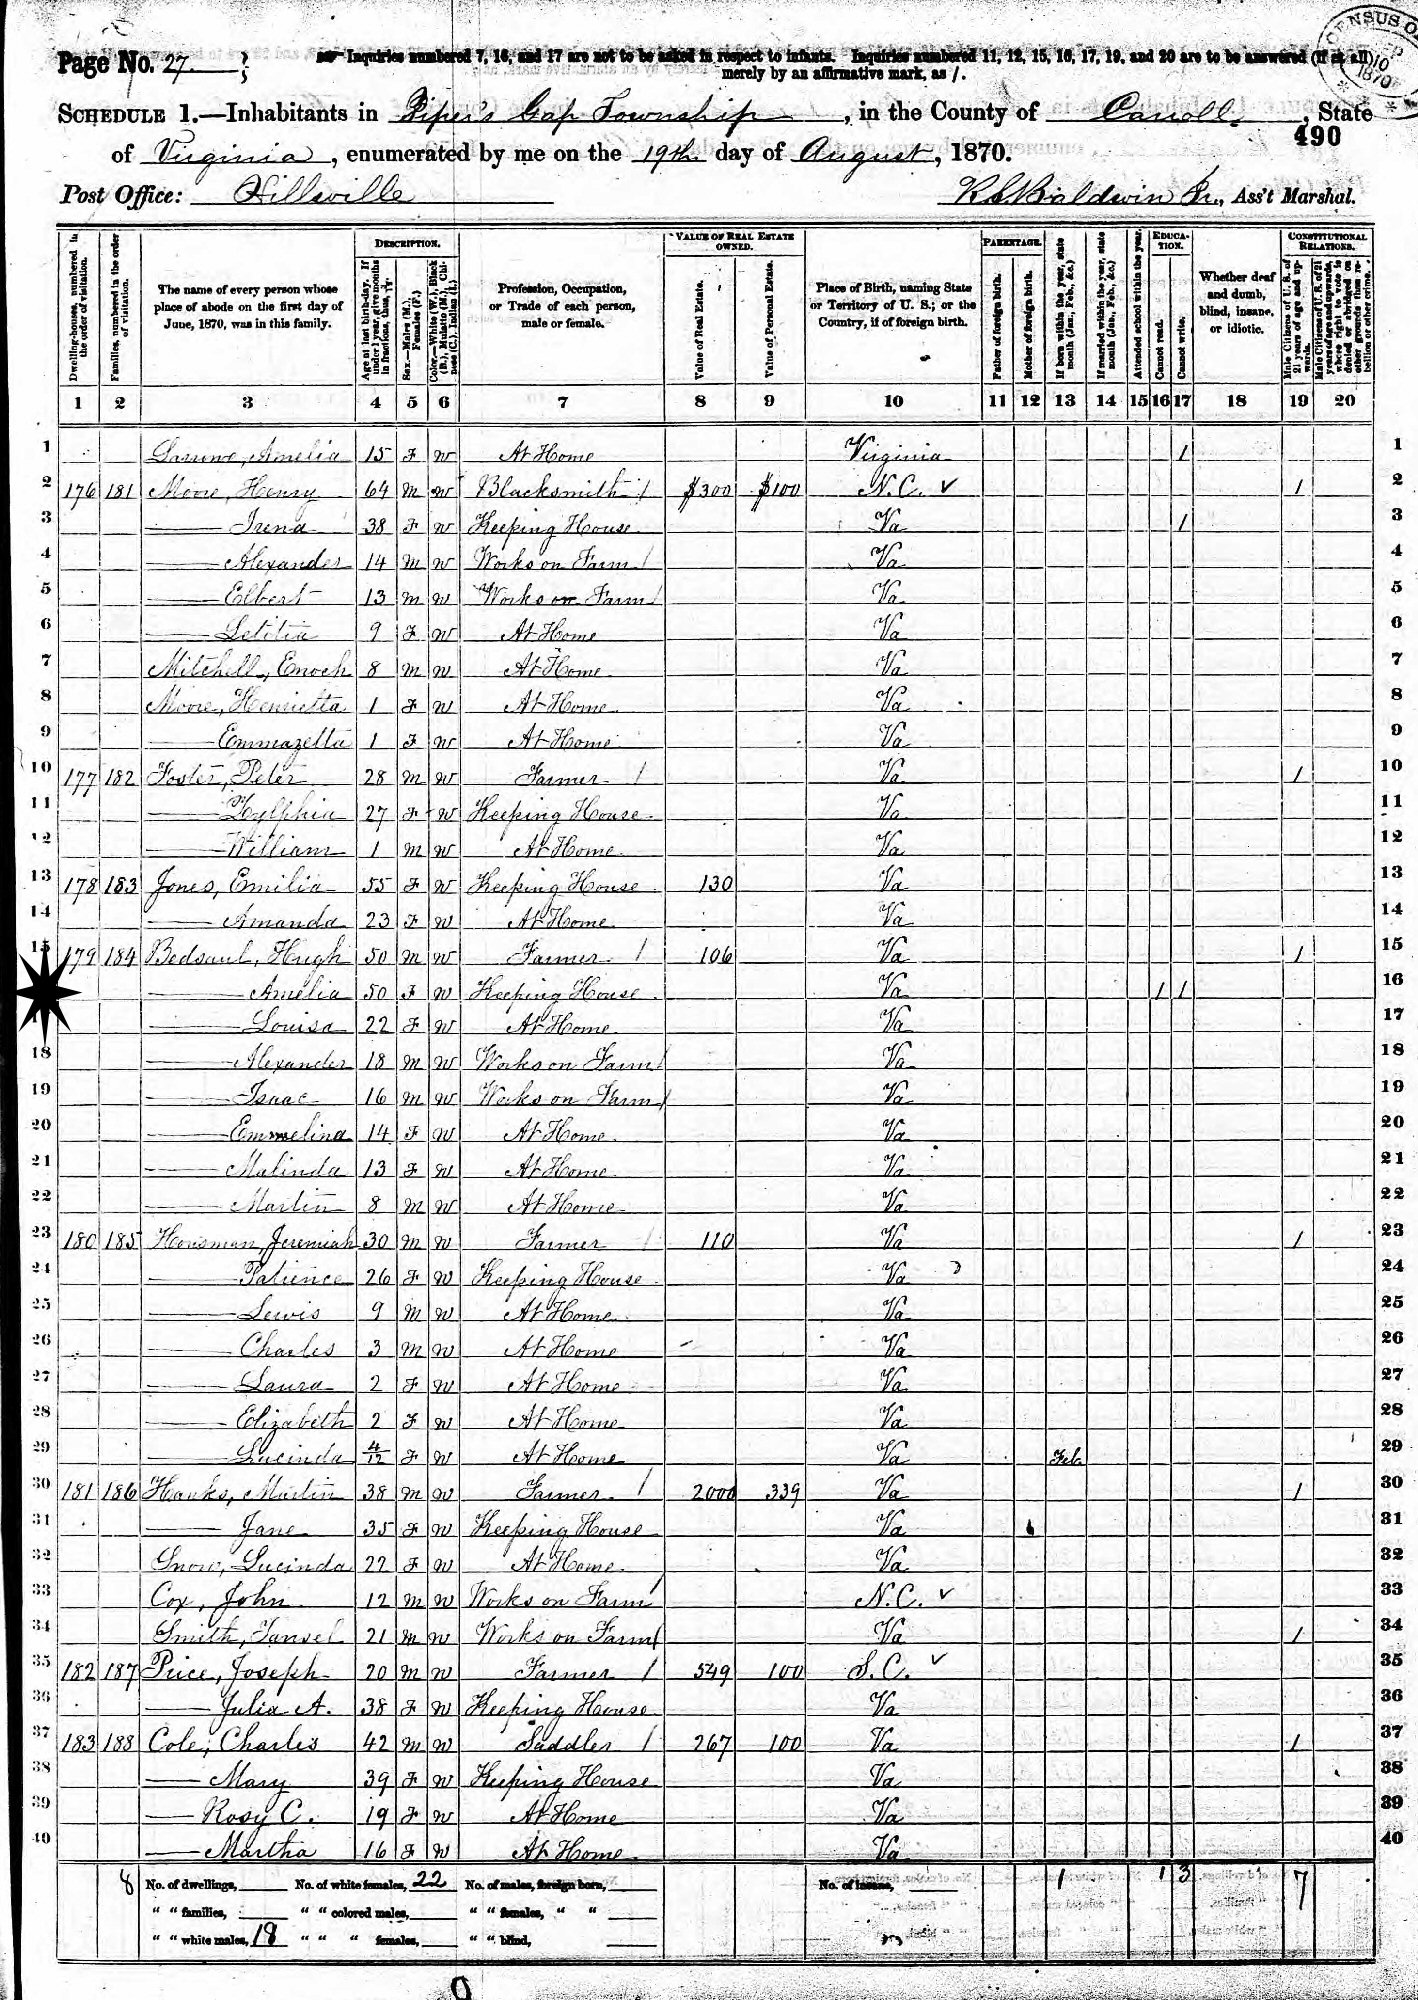 Page No. 27
Inquiries numbered 7, 16, and 17 are not to be asked in respect to infants. Inquiries numbered 11, 12, 15, 16, 17, 19, and 20 are to be answered (if at all)
merely by an affirmative mark, as /.
CENSUS 1870
SCHEDULE 1.—Inhabitants in Piper's Gap Township, in the County of Carroll, State
490
of Virginia, enumerated by me on the 19th day of August, 1870.
Post Office: Hillsville Baldwin Jr., Ass't Marshal.
Dwelling-houses, numbered in the order of visitation.
Families, numbered in the order of visitation.
The name of every person whose place of abode on the first day of June, 1870, was in this family.
DESCRIPTION.
Age at last birth-day. If under 1 year, give months in fractions, thus, 3/12.
Sex.—Males (M.), Females (F.)
Color.—White (W.), Black (B.), Mulatto (M.), Chinese (C.), Indian (I.)
Profession, Occupation, or Trade of each person, male or female.
VALUE OF REAL ESTATE OWNED.
Value of Real Estate.
Value of Personal Estate.
Place of Birth, naming State or Territory of U. S.; or the Country, if of foreign birth.
PARENTAGE.
Father of foreign birth.
Mother of foreign birth.
If born within the year, state month (Jan., Feb., &c.)
If married within the year, state month (Jan., Feb., &c.)
Attended school within the year.
EDUCATION.
Cannot read.
Cannot write.
Whether deaf and dumb, blind, insane, or idiotic.
CONSTITUTIONAL RELATIONS.
Male Citizens of U. S. of 21 years of age and upwards.
Male Citizens of U. S. of 21 years of age and upwards, whose right to vote is denied or abridged on other grounds than rebellion or other crime.
1 2 3 4 5 6 7 8 9 10 11 12 13 14 15 16 17 18 19 20
1 Amelia 15 F W At Home Virginia / 1
2 176 181 Moore, Henry 64 M W Blacksmith / $300 $100 N.C. ✓ / 2
3 — Irena 38 F W Keeping House Va / 3
4 — Alexander 14 M W Works on Farm / Va 4
5 — Elbert 13 M W Works on Farm / Va 5
6 — Letitia 9 F W At Home Va 6
7 Mitchell, Enoch 8 M W At Home Va 7
8 Moore, Henrietta 1 F W At Home Va 8
9 — Emmazetta 1 F W At Home Va 9
10 177 182 Foster, Peter 28 M W Farmer / Va / 10
11 — Zylphia 27 F W Keeping House Va 11
12 — William 1 M W At Home Va 12
13 178 183 Jones, Emilia 55 F W Keeping House 130 Va 13
14 — Amanda 23 F W At Home Va 14
15 179 184 Bedsaul, Hugh 50 M W Farmer / 106 Va / 15
— Amelia 50 F W Keeping House Va / / 16
— Louisa 22 F W At Home Va 17
18 — Alexander 18 M W Works on Farm / Va 18
19 — Isaac 16 M W Works on Farm / Va 19
20 — Emmelina 14 F W At Home Va 20
21 — Malinda 13 F W At Home Va 21
22 — Martin 8 M W At Home Va 22
23 180 185 Housman, Jeremiah 30 M W Farmer / 110 Va / 23
24 — Patience 26 F W Keeping House Va 24
25 — Lewis 9 M W At Home Va 25
26 — Charles 3 M W At Home Va 26
27 — Laura 2 F W At Home Va 27
28 — Elizabeth 2 F W At Home Va 28
29 — Lucinda 4/12 F W At Home Va Feb 29
30 181 186 Hanks, Martin 38 M W Farmer / 2000 339 Va / 30
31 — Jane 35 F W Keeping House Va 31
32 Snow, Lucinda 22 F W At Home Va 32
33 Cox, John 12 M W Works on Farm / N.C. ✓ 33
34 Smith, Tansel 21 M W Works on Farm / Va / 34
35 182 187 Price, Joseph 20 M W Farmer / 549 100 S.C. ✓ 35
36 — Julia A. 38 F W Keeping House Va 36
37 183 188 Cole, Charles 42 M W Saddler / 267 100 Va / 37
38 — Mary 39 F W Keeping House Va 38
39 — Rosy C. 19 F W At Home Va 39
40 — Martha 16 F W At Home Va 40
8 No. of dwellings, No. of white females, 22 No. of males, foreign born, No. of insane, 1 1 3 7
" " families, " " colored males, " " females, " "
" " white males, 18 " " " females, " " blind,